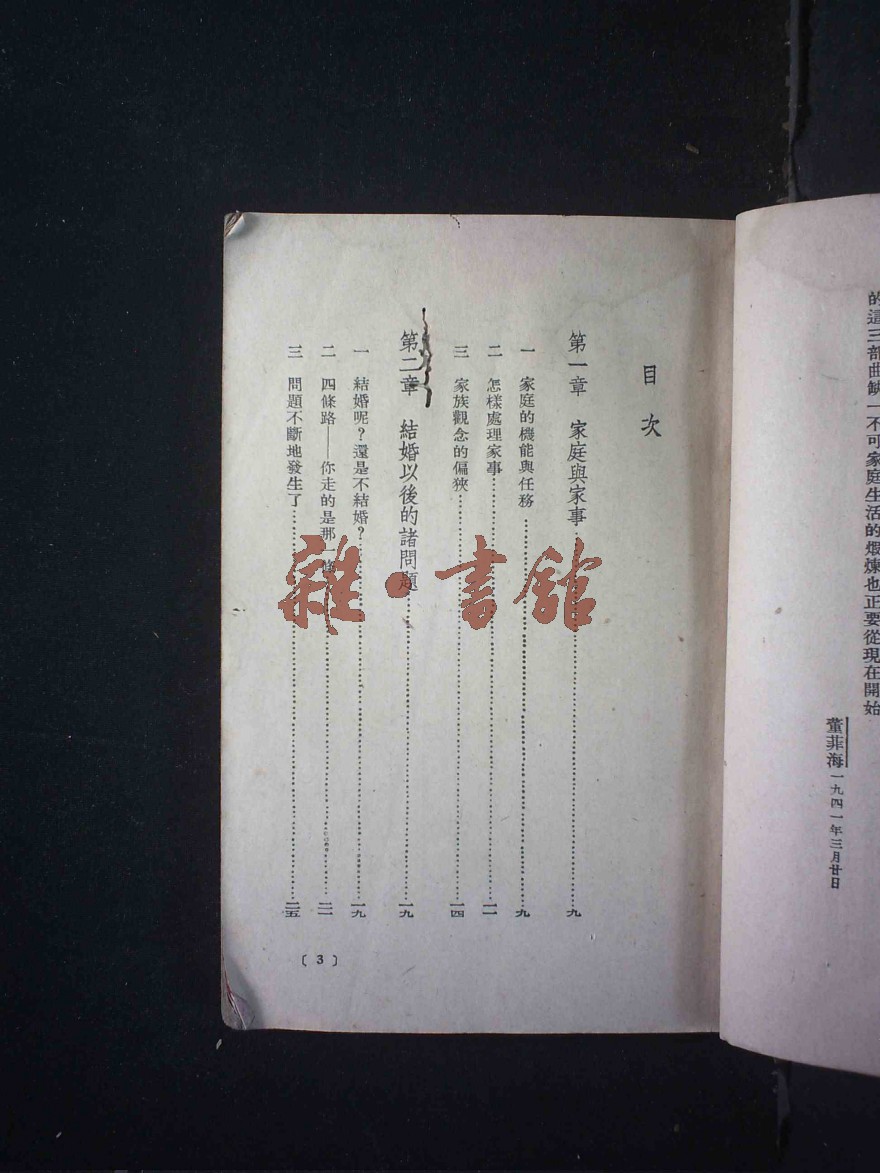 的這三部曲缺一不可家庭生活的煅煉也正要從現在開始
董菲海一九四一年三月廿日
目次
第一章 家庭與家事……九
一 家庭的機能與任務……九
二 怎樣處理家事……一一
三 家族觀念的偏狹……一四
第二章 結婚以後的諸問題……一九
一 結婚呢？還是不結婚？……一九
二 四條路——你走的是那一條……二一
三 問題不斷地發生了……二五
〔3〕
雜·書館